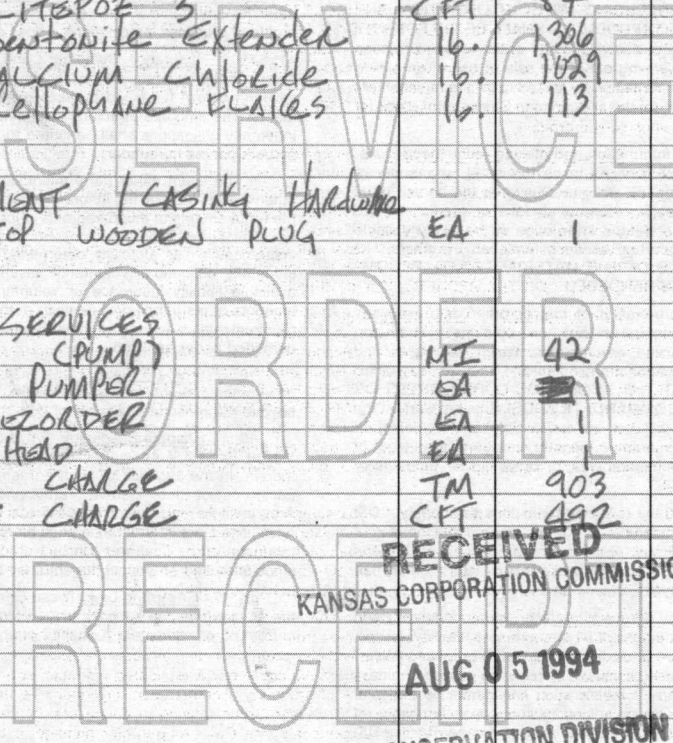 LITEPOZ 3 CFT
Bentonite Extender lb. 1,306
CALCIUM Chloride lb. 1029
Cellophane Flakes lb. 113
SERVICE
MENT / CASING HARdware
TOP WOODEN PLUG EA 1
ORDER
SERVICES
(PUMP) MI 42
PUMPER EA 1
RECORDER EA 1
HEAD EA 1
CHARGE TM 903
CHARGE CFT 492
RECEIPT
RECEIVED
KANSAS CORPORATION COMMISSI
AUG 05 1994
NSERVATION DIVISION